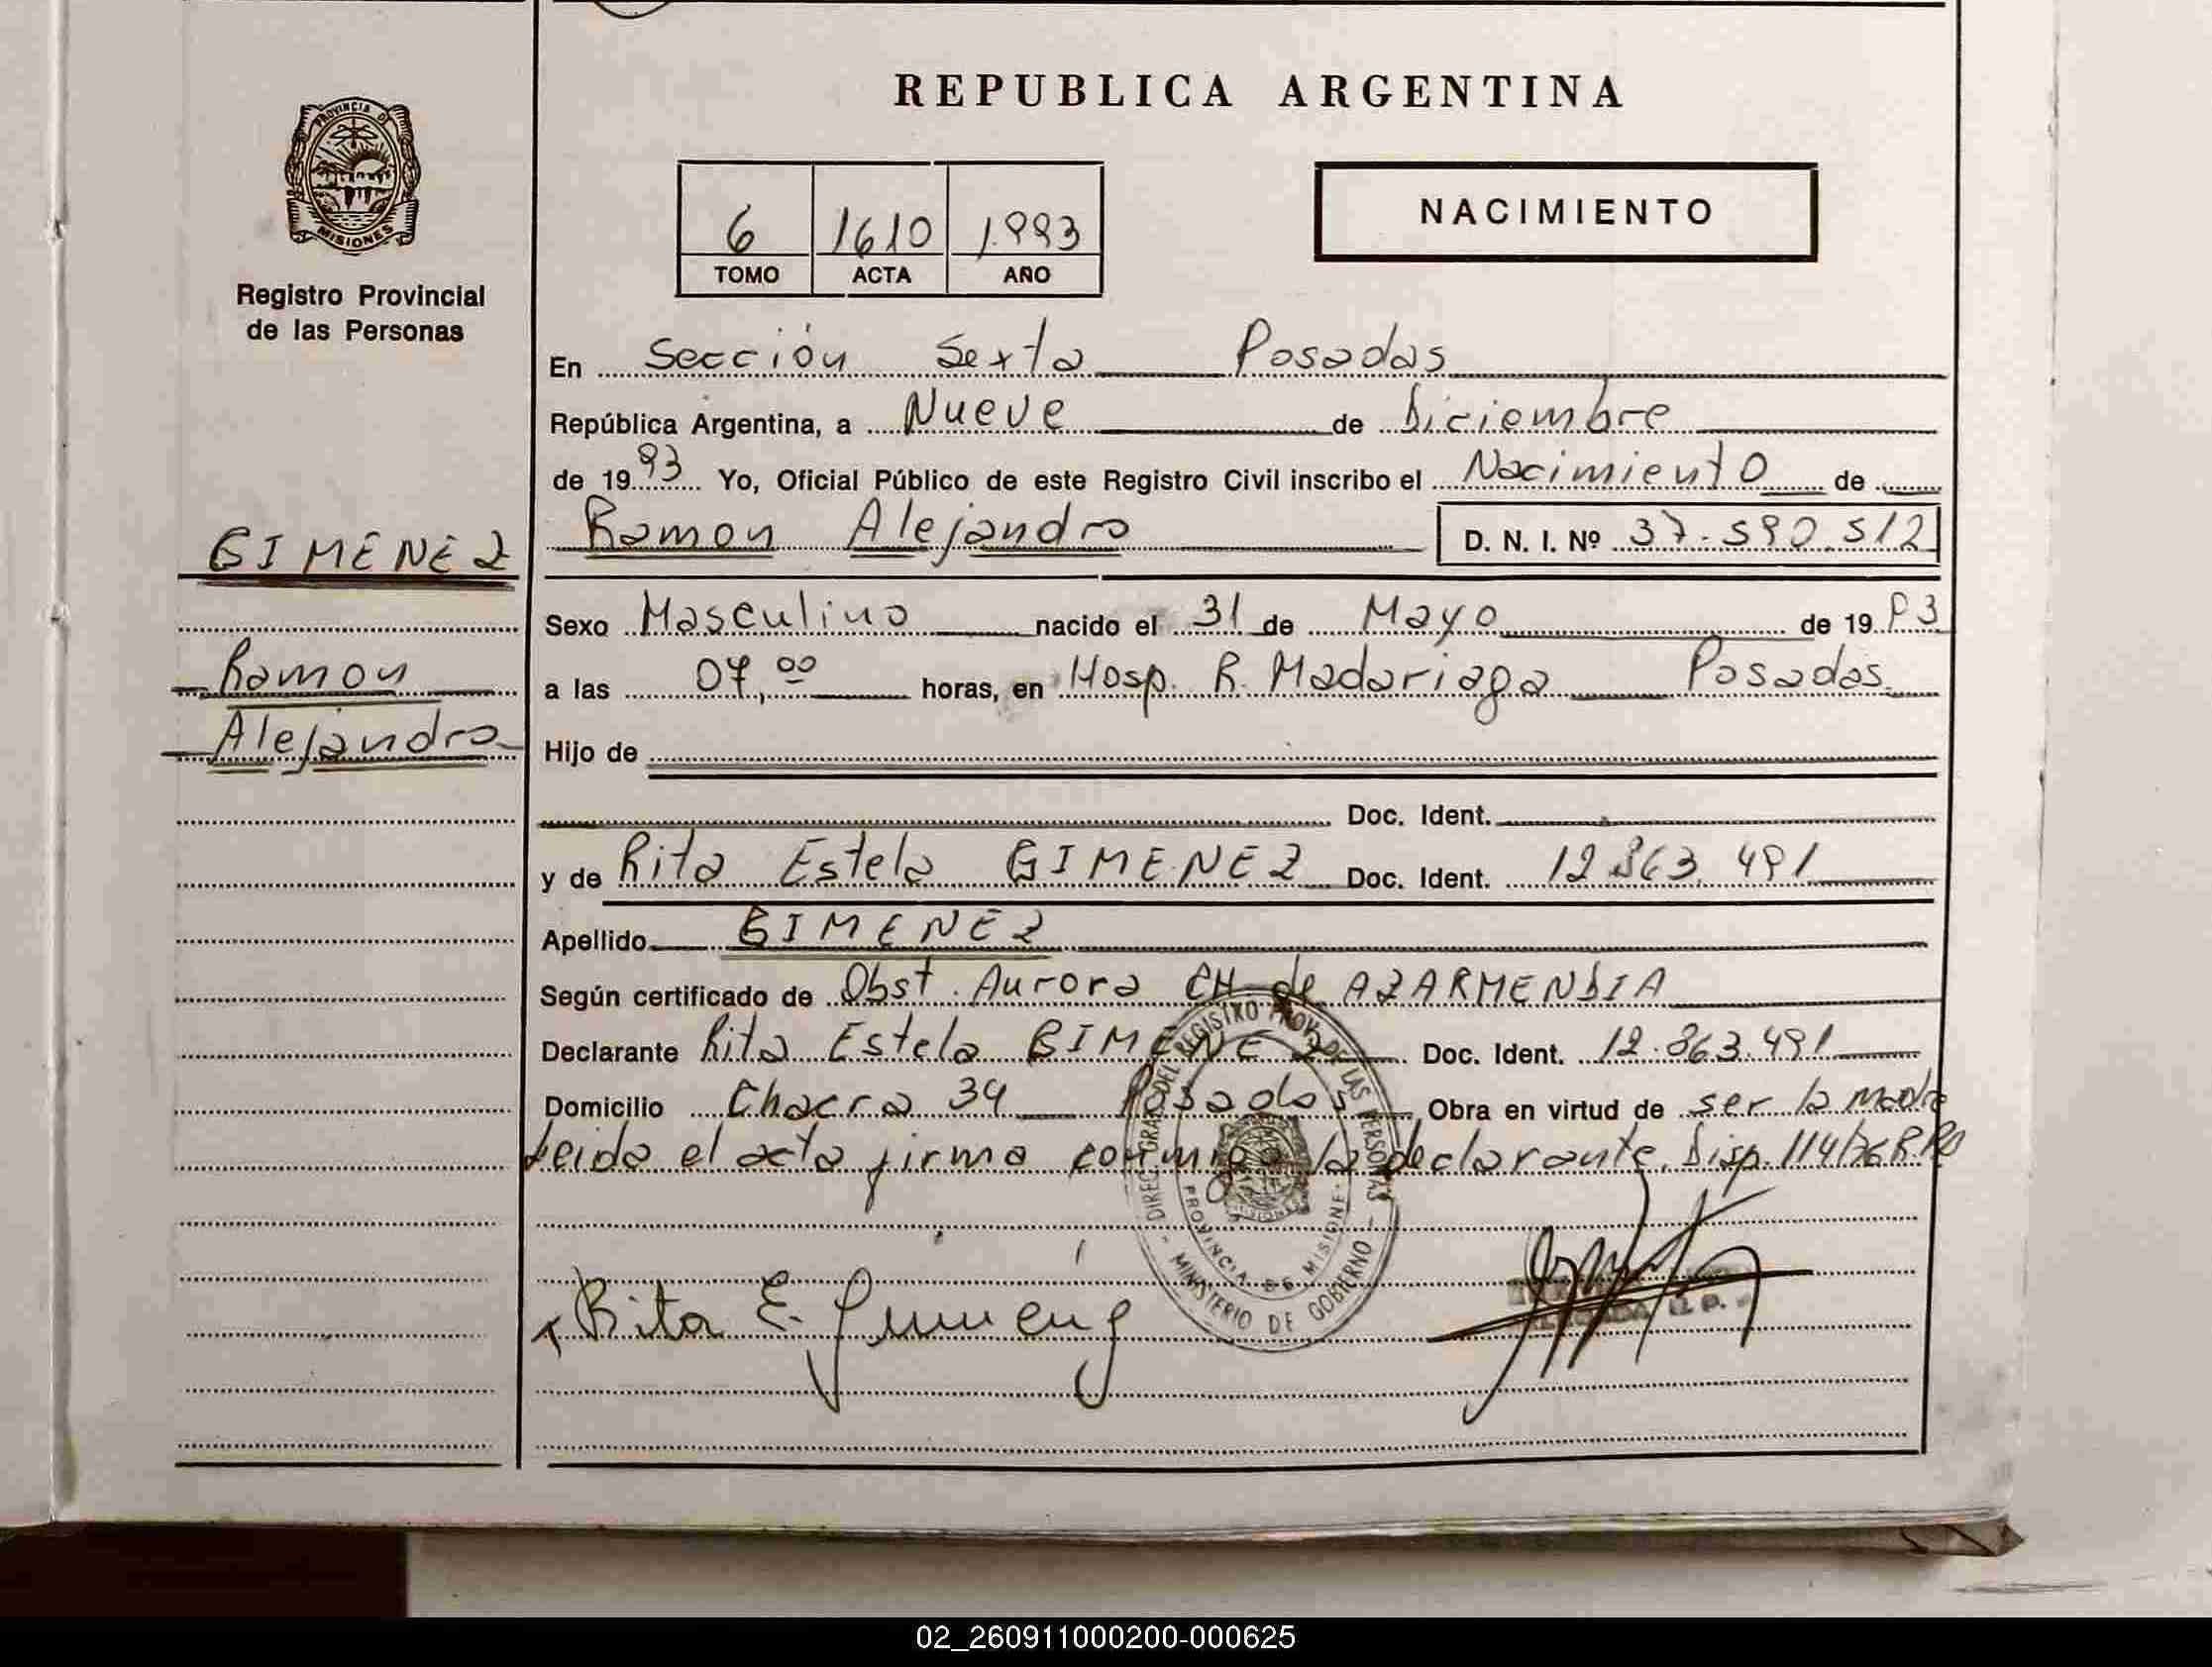 REPUBLICA ARGENTINA
PROVINCIA DE
MISIONES
Registro Provincial
de las Personas
6 1610 1.993
TOMO ACTA AÑO
NACIMIENTO
En Sección Sexta Posadas
República Argentina, a Nueve de Diciembre
de 1993 Yo, Oficial Público de este Registro Civil inscribo el Nacimiento de
Ramon Alejandro D. N. I. Nº 37.590.512
GIMENEZ
Ramon
Alejandro
Sexo Masculino nacido el 31 de Mayo de 1993
a las 07,00 horas, en Hosp. R. Madariaga Posadas
Hijo de
Doc. Ident.
y de Rita Estela GIMENEZ Doc. Ident. 12.863.491
Apellido GIMENEZ
Según certificado de Obst. Aurora CH de AZARMENDIA
Declarante Rita Estela GIMENEZ Doc. Ident. 12.863.491
Domicilio Chacra 34 Posadas Obra en virtud de ser la madre
Leida el acta firma conmigo la declarante. Disp. 114/
DIREC. GRAL. DEL REGISTRO PROV. DE LAS PERSONAS
PROVINCIA DE MISIONES
MINISTERIO DE GOBIERNO
Rita E. Gimenez
02_260911000200-000625